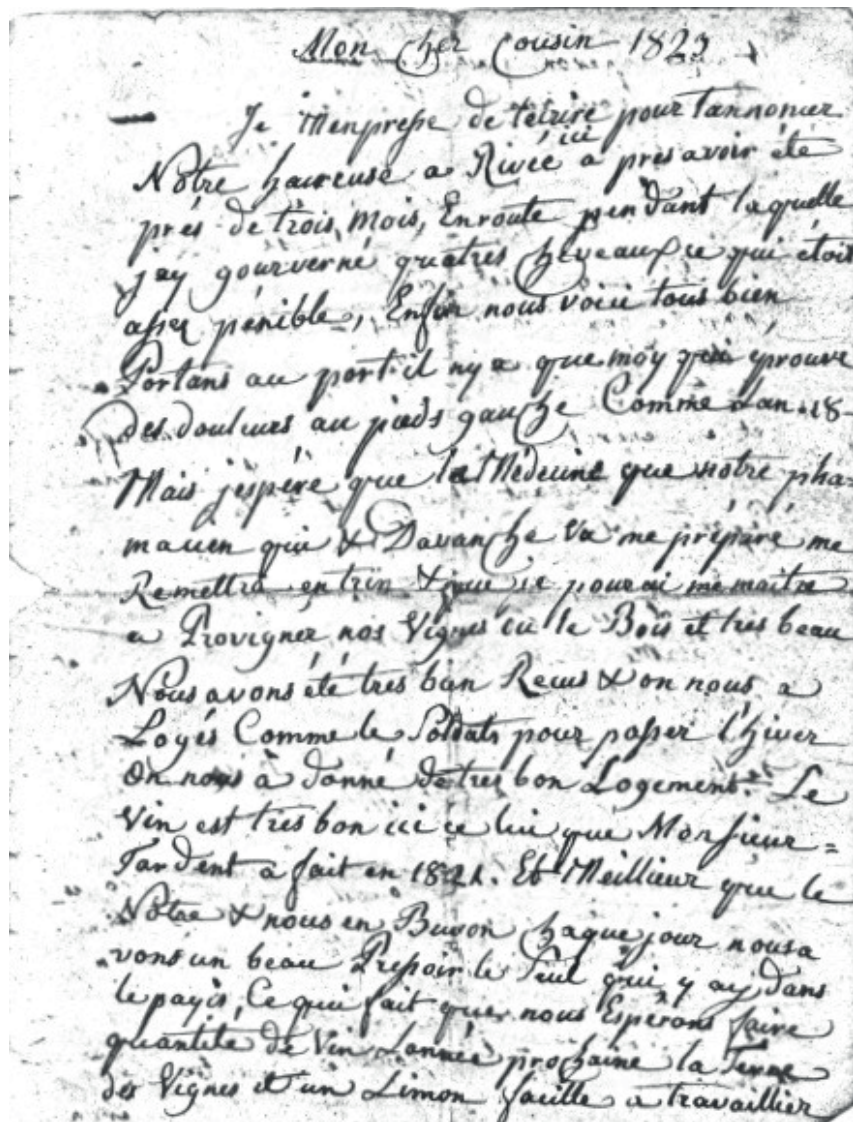 Mon Cher Cousin 1823
Je m'enpresse de técrire pour tannoncer
Nôtre haireuse a Rivée ici a près avoir été
près de trois mois, Enroute pendant laquelle
jay gourverné quatres Cheveaux ce qui étoit
assez pénible, Enfin nous voici tous bien
Portans au port il ny a que moy qui éprouve
des douleurs au pieds gauche Comme Lan 18
Mais jespére que la Médecine que notre pha=
macien qui & Davanche va me préparé me
Remettra en trin & que je pourai me maitre
a Provigner nos Vignes ou le Bois et tres beau
Nous avons été tres bien Recus & on nous a
Logés Comme le Soldats pour passer l'hiver
On nous à donné de tres bon Logement. Le
Vin est tres bon ici ce lui que Monsieur=
Tardent a fait en 1821. Et Meillieur que le
Notre & nous en Buvon chaque jour nousa
vons un beau Pressoir le Seul qui y ay dans
le payis, Ce qui fait que nous Espérons faire
quantité de Vin Lannée prochaine la Terre
des Vignes et un Limon facille a travaillier